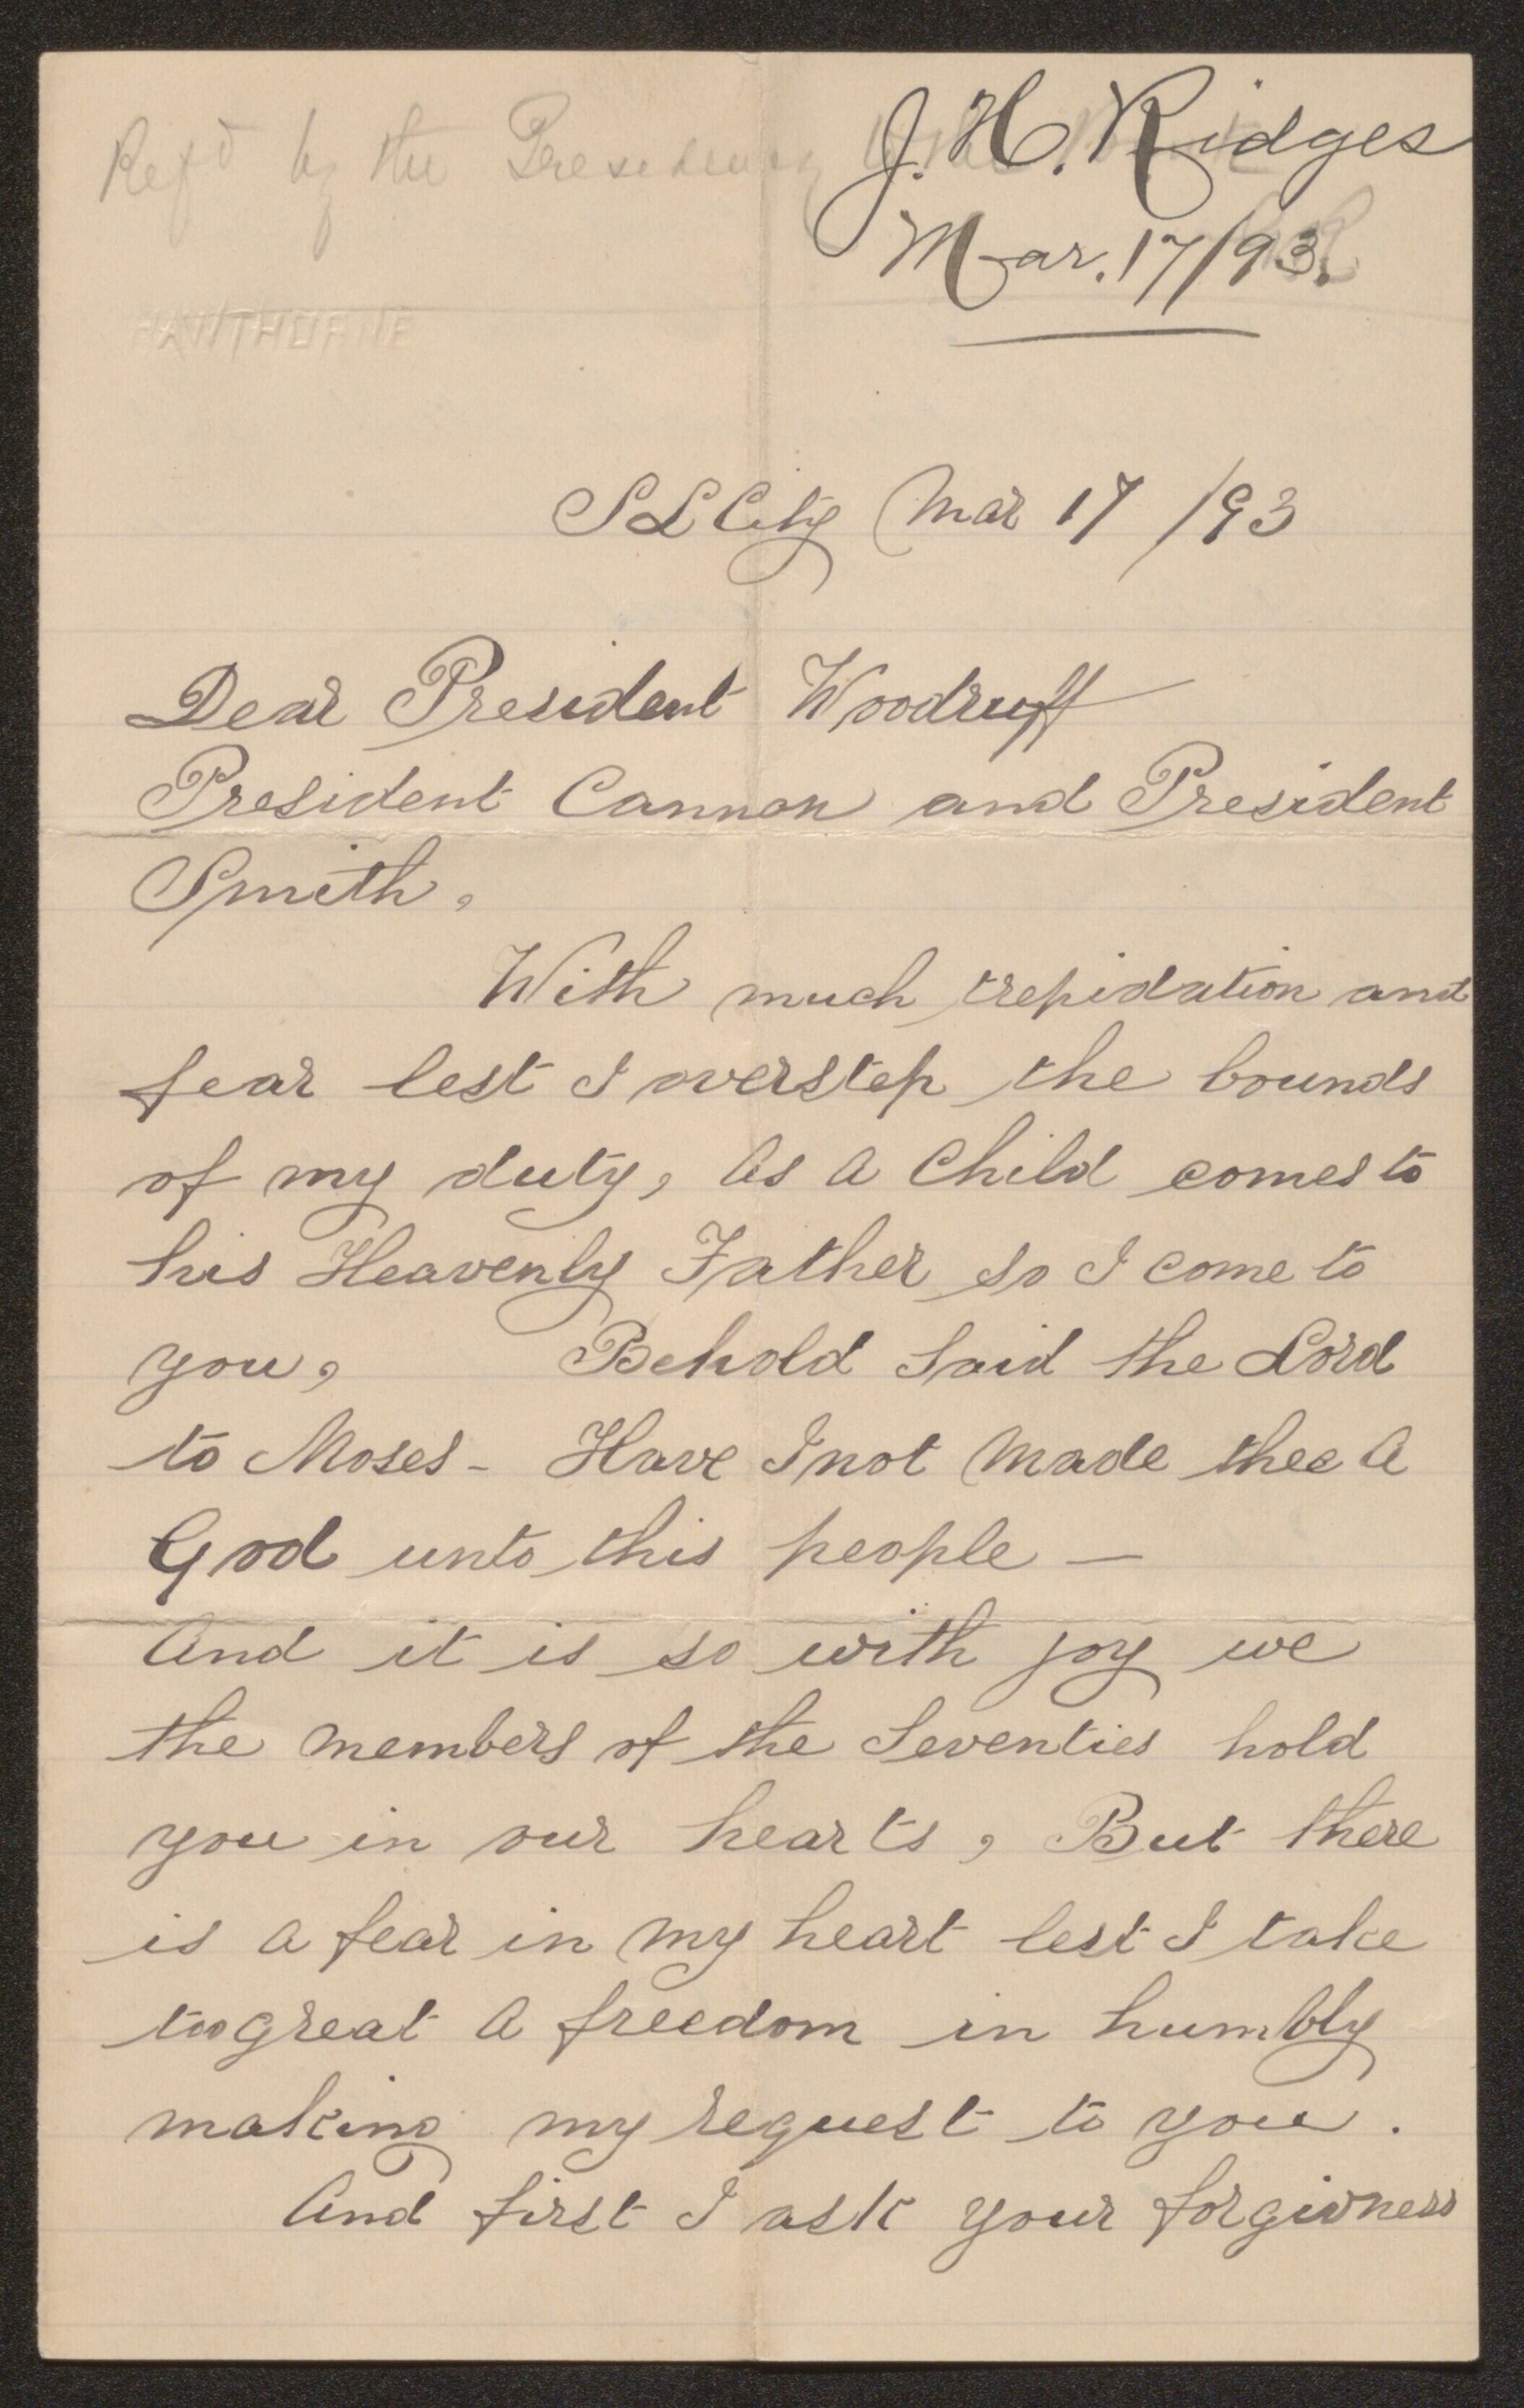 Ref'd by the Presidency
J. H. Ridges
Mar. 17/93.
HAWTHORNE
S L City Mar 17 /93
Dear President Woodruff
President Cannon and President
Smith,
With much trepidation and
fear lest I overstep the bounds
of my duty, As A Child comes to
his Heavenly Father so I come to
you, Behold Said the Lord
to Moses - Have I not Made thee A
God unto this people —
And it is so with joy we
the Members of the Seventies hold
you in our hearts, But there
is A fear in My heart lest I take
too great A freedom in humbly
making my request to you.
And first I ask your forgivness